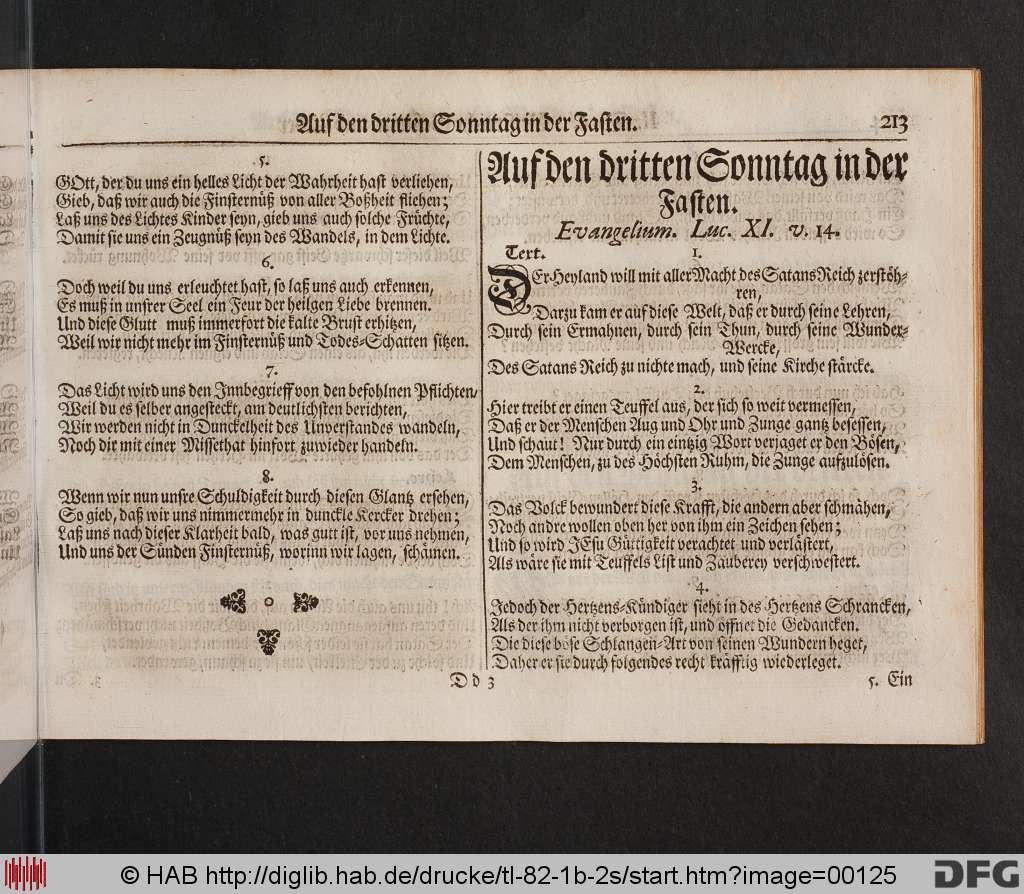 Auf den dritten Sonntag in der Fasten. 213
5.
GOtt, der du uns ein helles Licht der Wahrheit hast verliehen,
Gieb, daß wir auch die Finsternüß von aller Boßheit fliehen;
Laß uns des Lichtes Kinder seyn, gieb uns auch solche Früchte,
Damit sie uns ein Zeugnüß seyn des Wandels, in dem Lichte.
6.
Doch weil du uns erleuchtet hast, so laß uns auch erkennen,
Es muß in unsrer Seel ein Feur der heilgen Liebe brennen.
Und diese Glutt muß immerfort die kalte Brust erhitzen,
Weil wir nicht mehr im Finsternüß und Todes-Schatten sitzen.
7.
Das Licht wird uns den Innbegrieff von den befohlnen Pflichten/
Weil du es selber angesteckt, am deutlichsten berichten,
Wir werden nicht in Dunckelheit des Unverstandes wandeln,
Noch dir mit einer Missethat hinfort zuwieder handeln.
8.
Wenn wir nun unsre Schuldigkeit durch diesen Glantz ersehen,
So gieb, daß wir uns nimmermehr in dunckle Kercker drehen;
Laß uns nach dieser Klarheit bald, was gutt ist, vor uns nehmen,
Und uns der Sünden Finsternüß, worinn wir lagen, schämen.
Auf den dritten Sonntag in der
Fasten.
Evangelium. Luc. XI. v. 14.
Text. 1.
DEr Heyland will mit aller Macht des Satans Reich zerstöh-
ren,
Darzu kam er auf diese Welt, daß er durch seine Lehren,
Durch sein Ermahnen, durch sein Thun, durch seine Wunder-
Wercke,
Des Satans Reich zu nichte mach, und seine Kirche stärcke.
2.
Hier treibt er einen Teuffel aus, der sich so weit vermessen,
Daß er der Menschen Aug und Ohr und Zunge gantz besessen,
Und schaut! Nur durch ein eintzig Wort verjaget er den Bösen,
Dem Menschen, zu des Höchsten Ruhm, die Zunge aufzulösen.
3.
Das Volck bewundert diese Krafft, die andern aber schmähen,
Noch andre wollen oben her von ihm ein Zeichen sehen;
Und so wird JEsu Güttigkeit verachtet und verlästert,
Als wäre sie mit Teuffels List und Zauberey verschwestert.
4.
Jedoch der Hertzens-Kündiger sieht in des Hertzens Schrancken,
Als der ihm nicht verborgen ist, und öffnet die Gedancken.
Die diese böse Schlangen-Art von seinen Wundern heget,
Daher er sie durch folgendes recht kräfftig wiederleget.
D d 3 5. Ein
© HAB http://diglib.hab.de/drucke/tl-82-1b-2s/start.htm?image=00125
DFG